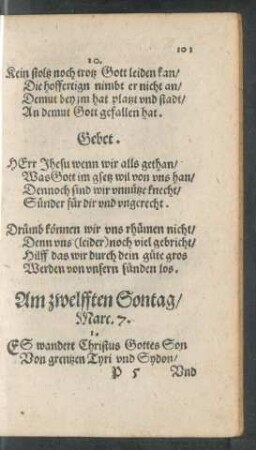 101
10.
Kein stoltz noch trotz Gott leiden kan/
Die hoffertign nimbt er nicht an/
Demut bey jm hat platzt vnd stadt/
An demut Gott gefallen hat.
Gebet.
HErr Jhesu wenn wir alls gethan/
Was Gott im gsetz wil von vns han/
Dennoch sind wir vnnütze knecht/
Sünder für dir vnd vngerecht.
Drümb können wir vns rhümen nicht/
Denn vns (leider) noch viel gebricht/
Hilff das wir durch dein güte gros
Werden von vnsern sünden los.
Am zwelfften Sontag/
Marc. 7.
1.
ES wandert Christus Gottes Son
Von grentzen Tyri vnd Sydon/
P 5 Vnd